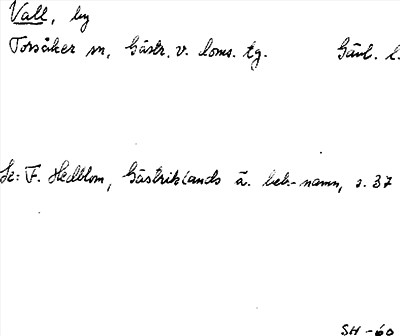 Vall, by
Torsåker sn, Gästr. v. doms. tg. Gävl. l.
Se: F. Hedblom, Gästriklands ä. beb.-namn, s. 37
SH -60